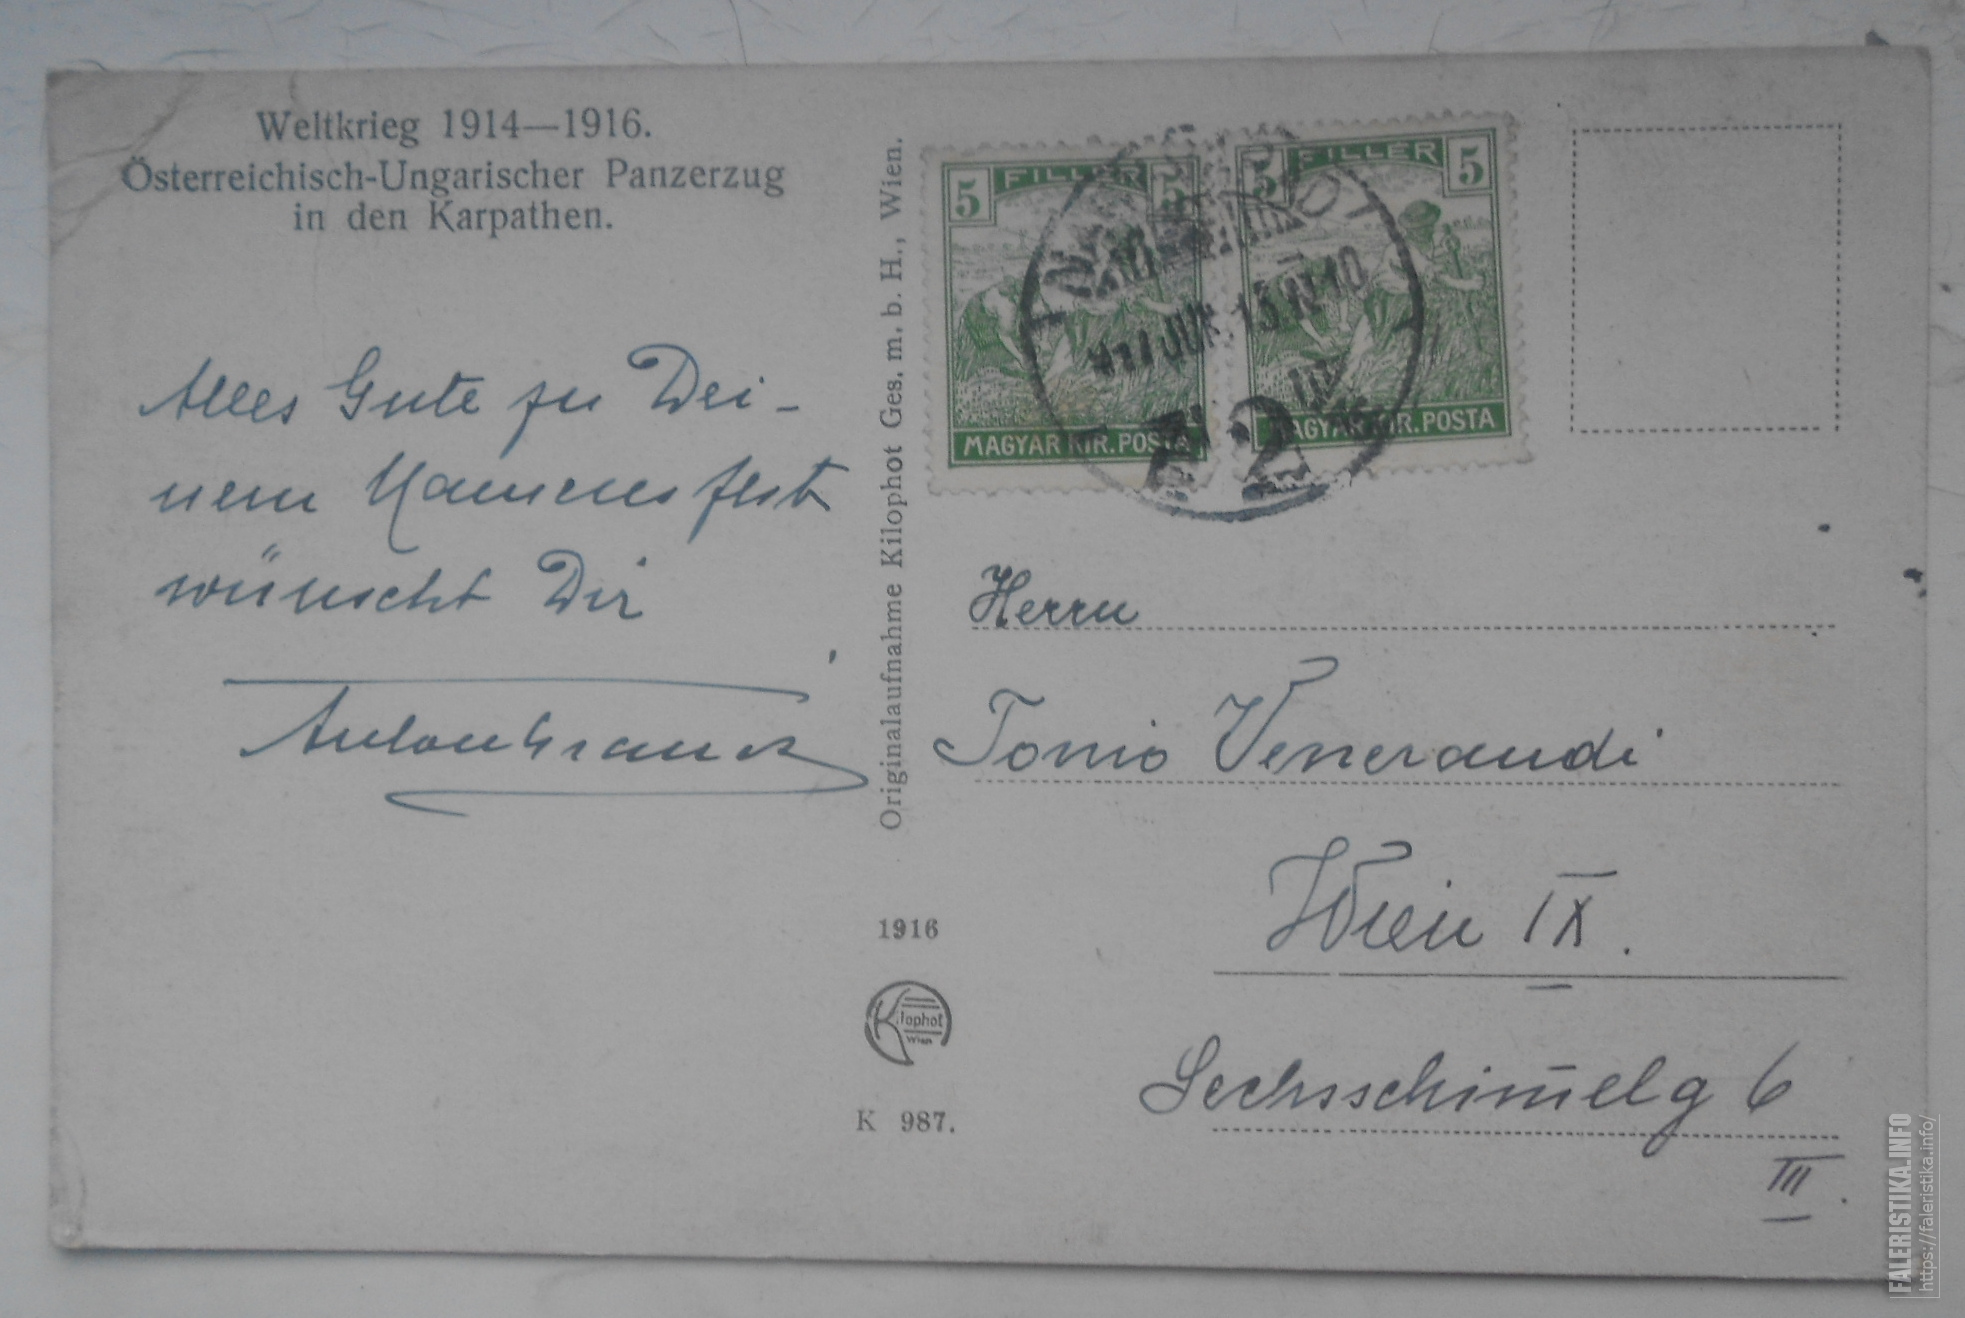 Weltkrieg 1914—1916.
Österreichisch-Ungarischer Panzerzug
in den Karpathen.
Alles Gute zu Dei-
nem Namensfest
wünscht Dir
Originalaufnahme Kilophot Ges. m. b. H., Wien.
1916
Kilophot
Wien
K 987.
5 FILLER 5
MAGYAR KIR. POSTA
5 FILLER 5
MAGYAR KIR. POSTA
JUN. 13
Herrn
Tonio Venerandi
Wien IX.
Sechsschim̅elg 6
III.
FALERISTIKA.INFO
https://faleristika.info/